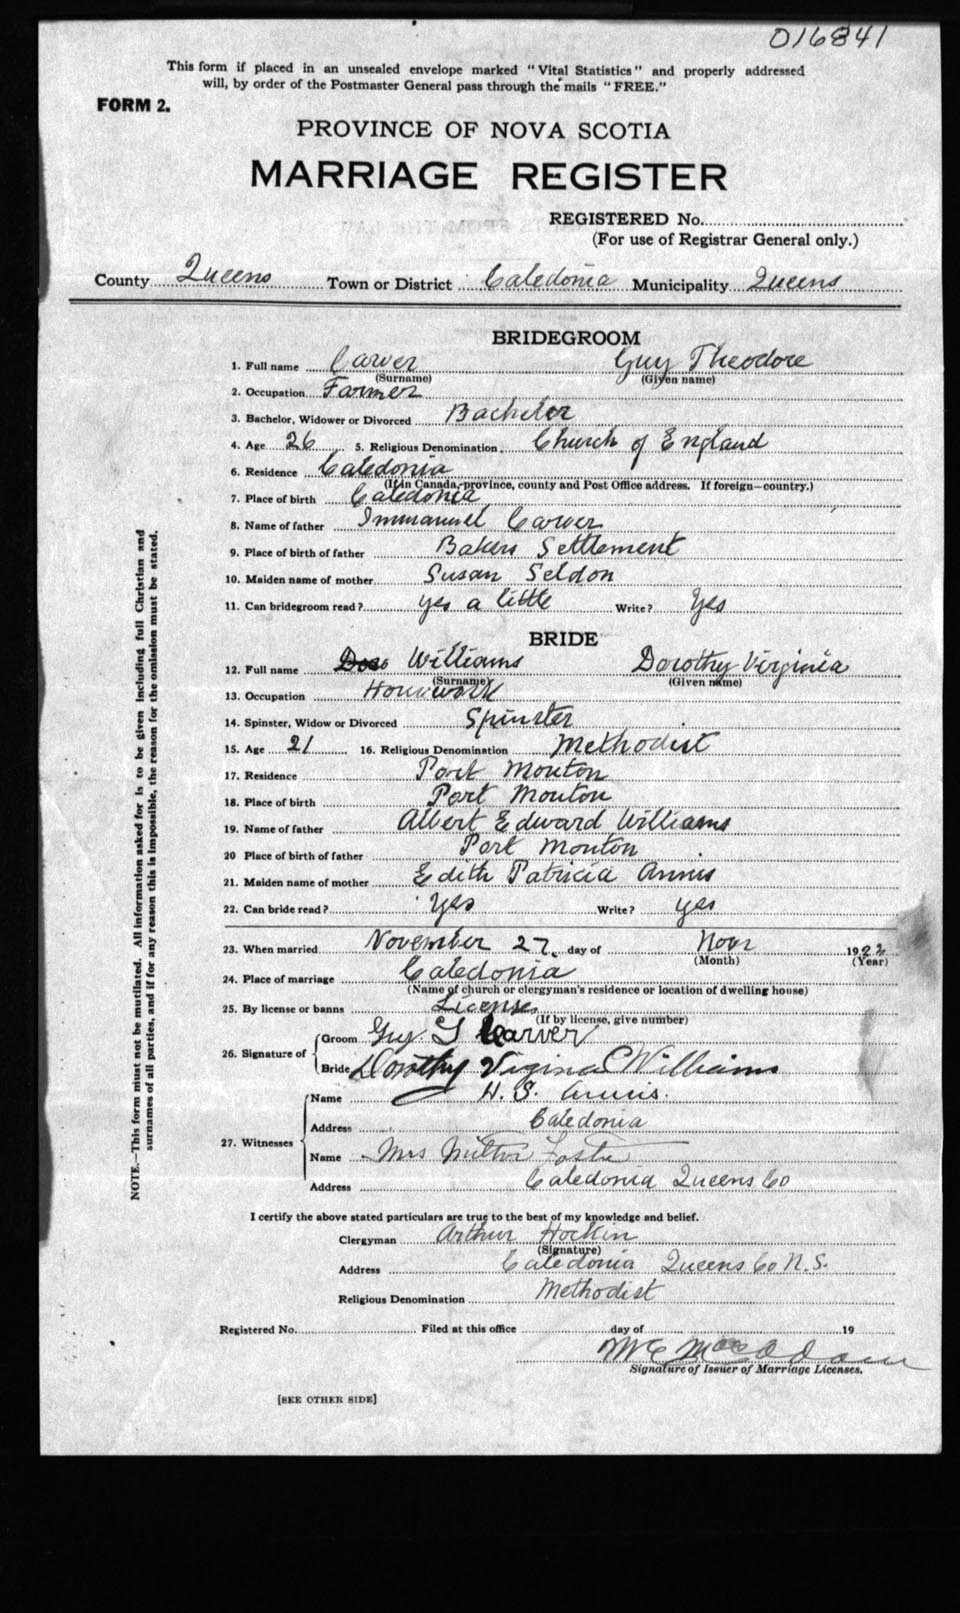 016841
This form if placed in an unsealed envelope marked "Vital Statistics" and properly addressed
will, by order of the Postmaster General pass through the mails "FREE."
FORM 2.
PROVINCE OF NOVA SCOTIA
MARRIAGE REGISTER
REGISTERED No.
(For use of Registrar General only.)
County Queens Town or District Caledonia Municipality Queens
BRIDEGROOM
1. Full name Carver Guy Theodore
(Surname) (Given name)
2. Occupation Farmer
3. Bachelor, Widower or Divorced Bachelor
4. Age 26 5. Religious Denomination Church of England
6. Residence Caledonia
(If in Canada, province, county and Post Office address. If foreign—country.)
7. Place of birth Caledonia
8. Name of father Immanuel Carver
9. Place of birth of father Bakers Settlement
10. Maiden name of mother Susan Seldon
11. Can bridegroom read? yes a little Write? Yes
BRIDE
12. Full name Williams Dorothy Virginia
(Surname) (Given name)
13. Occupation Housework
14. Spinster, Widow or Divorced Spinster
15. Age 21 16. Religious Denomination Methodist
17. Residence Port Mouton
18. Place of birth Port Mouton
19. Name of father Albert Edward Williams
20 Place of birth of father Port Mouton
21. Maiden name of mother Edith Patricia Annis
22. Can bride read? Yes Write? yes
23. When married November 27. day of Novr 1922
(Month) (Year)
24. Place of marriage Caledonia
(Name of church or clergyman's residence or location of dwelling house)
25. By license or banns License
(If by license, give number)
26. Signature of
Groom Guy T Carver
Bride Dorothy Virginia Williams
27. Witnesses
Name H. S. Annis.
Address Caledonia
Name Mrs Milton Foster
Address Caledonia Queens Co
I certify the above stated particulars are true to the best of my knowledge and belief.
Clergyman Arthur Hockin
(Signature)
Address Caledonia Queens Co N.S.
Religious Denomination Methodist
Registered No. Filed at this office day of 19
Signature of Issuer of Marriage Licenses.
[SEE OTHER SIDE]
NOTE.—This form must not be mutilated. All information asked for is to be given including full Christian and
surnames of all parties, and if for any reason this is impossible, the reason for the omission must be stated.